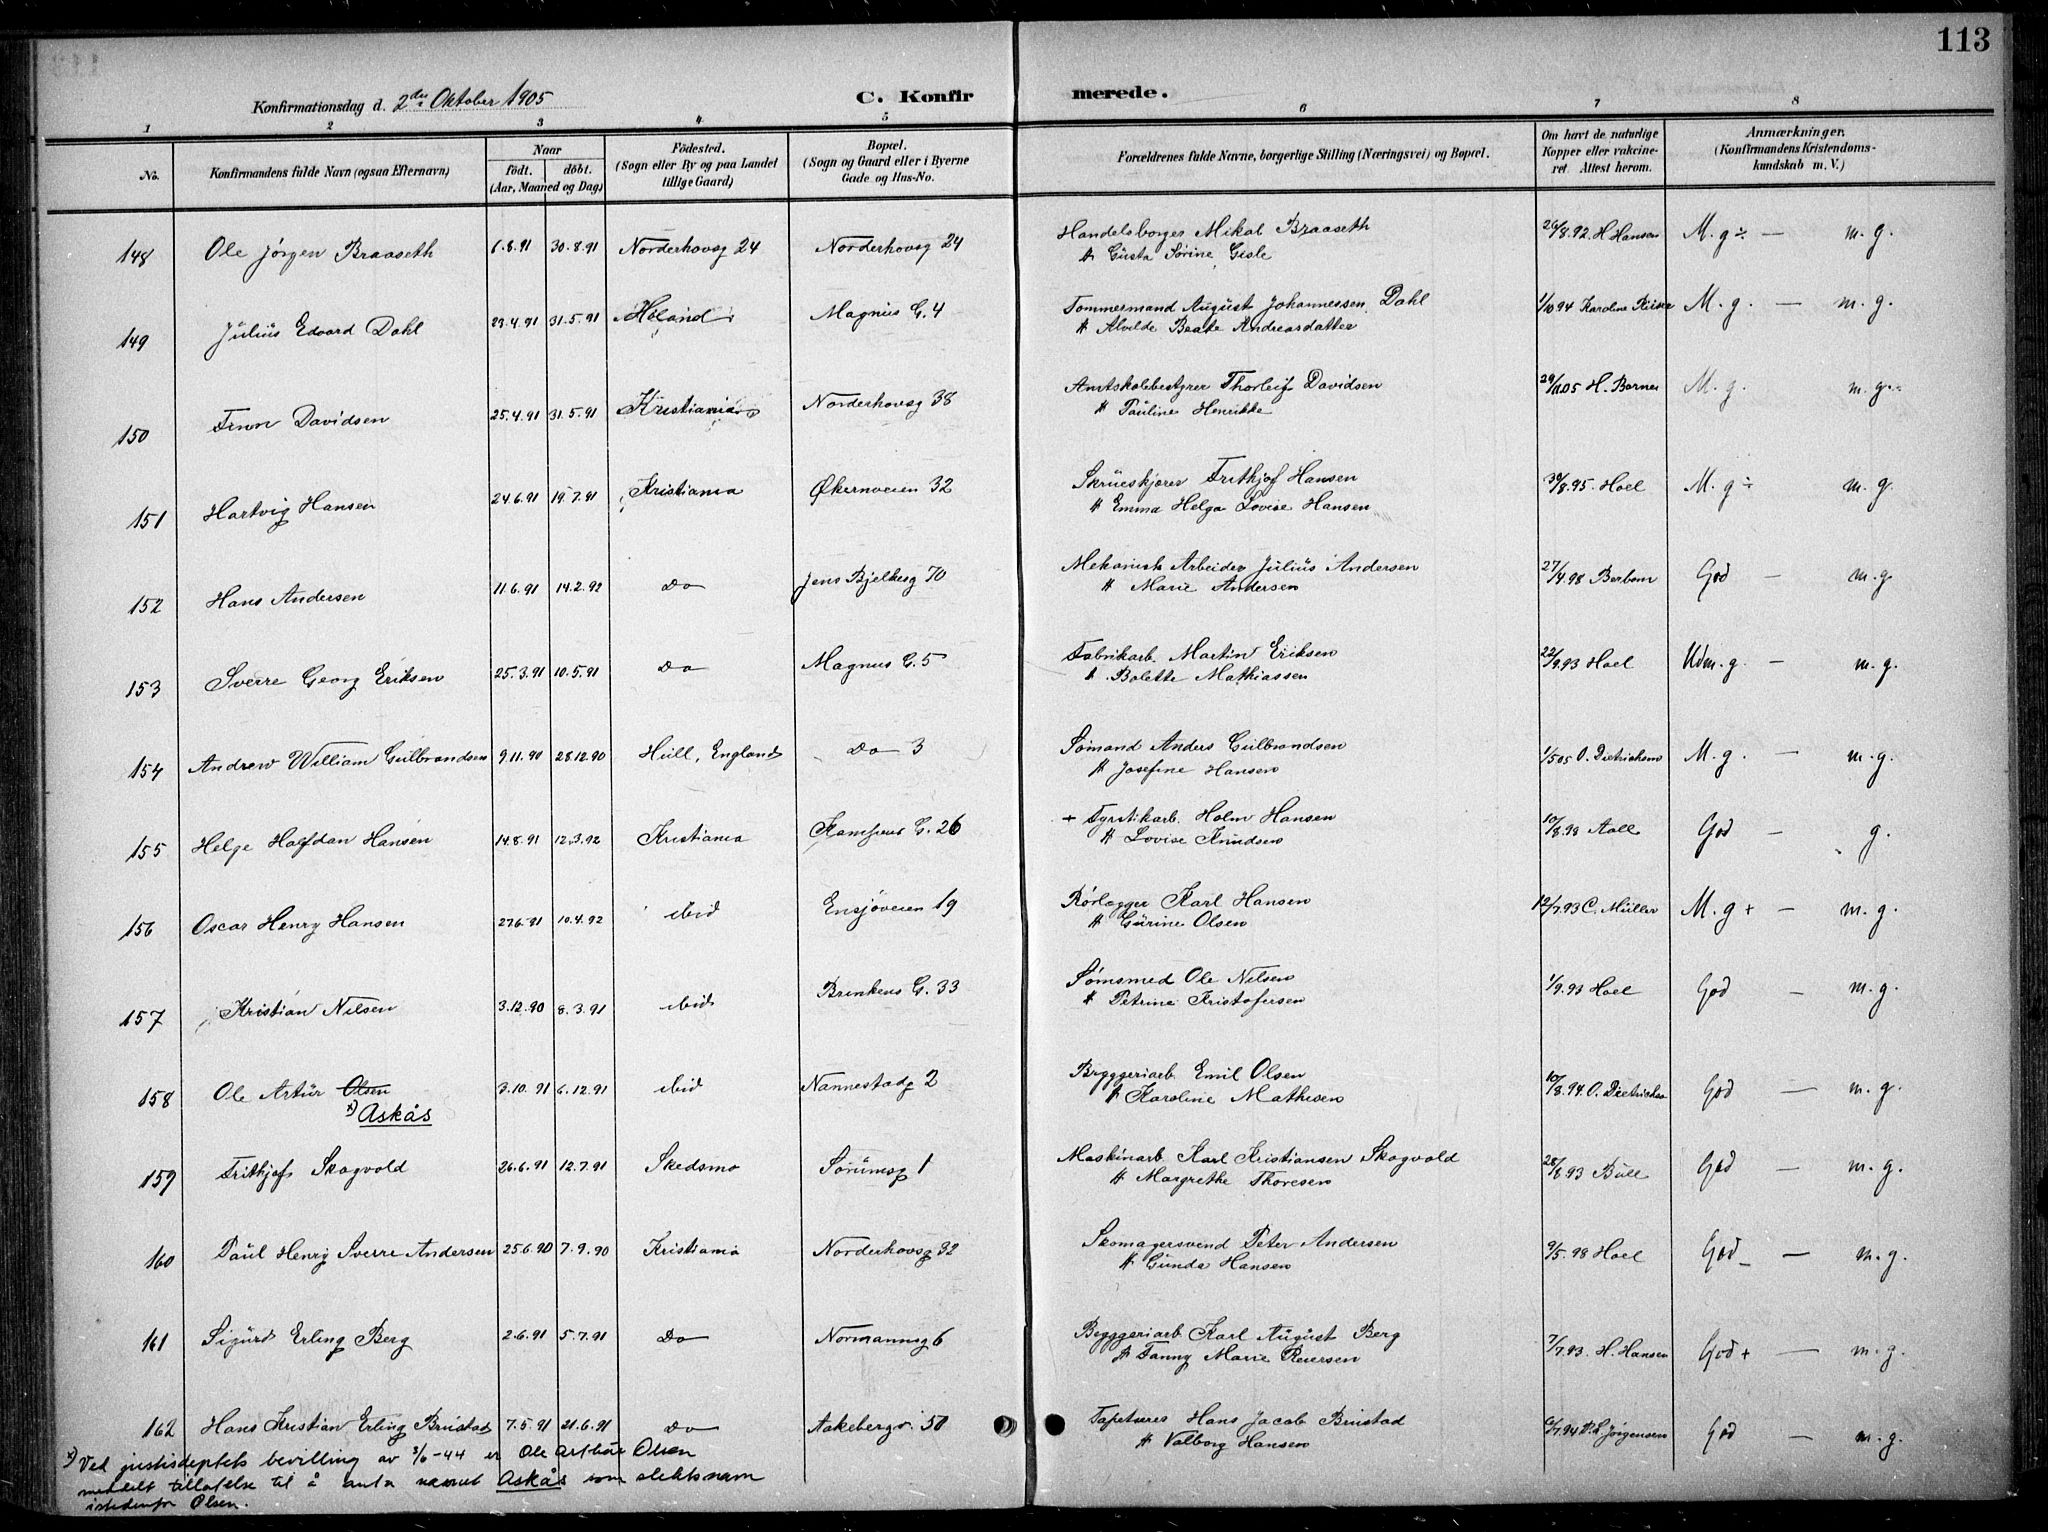 113
Konfirmationsdag d. 2den Oktober 1905 C. Konfirmerede.
1 2 3 4 5 6 7 8
No. Konfirmandens fulde Navn (ogsaa Efternavn) Naar født. døbt. (Aar, Maaned og Dag) Fødested. (Sogn eller By og paa Landet tillige Gaard) Bopæl. (Sogn og Gaard eller i Byerne Gade og Hus-No. Forældrenes fulde Navne, borgerlige Stilling (Næringsvei) og Bopæl. Om havt de naturlige Kopper eller vakcineret. Attest herom. Anmærkninger. (Konfirmandens Kristendomskundskab m. V.)
148 Ole Jørgen Braaseth 6.8.91 30.8.91 Norderhovsg 24 Norderhovsg 24 Handelsborger Mikal Braaseth 26/8.92. H Hansen M. g÷ — m. g.
H Gusta Sørine Gisle
149 Julius Edvard Dahl 29.4.91 31.5.91 Høland Magnus G. 4 Tømmermand August Johannessen Dahl 1/10 94 Karoline M. g. — m. g.
H Alvilde Beate Andreasdatter
150 Finn Davidsen 25.4.91 31.5.91 Kristiania Norderhovsg 38 Amtskolebestyrer Thorleif Davidsen H. Borner M. g. m. g.
H Pauline Henrikke
151 Hartvig Hansen 24.6.91 19.7.91 Kristiania Økernveien 32 Skrueskjærer Frithjof Hansen 30/8.95. Hoel M. g÷ m. g.
H Emma Helga Lovise Hansen
152 Hans Andersen 11.6.91 14.2.92 Do Jens Bjelkesg 70 Mekanisk Arbeider Julius Andersen 27/4.98 Berbom God — m. g.
H Marie Andersen
153 Sverre Georg Eriksen 25.3.91 10.5.91 Do Magnus G. 5 Fabrikarb. Martin Eriksen 22/9.93 Hoel Udm. g. — m. g.
H. Bolette Mathiassen
154 Andrew William Gulbrandsen 9.11.90 28.12.90 Hull, England Do 3 Sømand Anders Gulbrandsen 1/5 05 O. Dietrichson M. g. — m. g.
H Josefine Hansen
155 Helge Halfdan Hansen 14.8.91 12.3.92 Kristiania Kampens G. 26 + Fyrstikarb. Holm Hansen 10/8.98 Aall God — g.
H Lovise Knudsen
156 Oscar Henry Hansen 27.6.91 10.4.92 ibid Ensjøveien 19 Rørlægger Karl Hansen 12/7.93 C. Müller M. g + — m. g.
H Gurine Olsen
157 Kristian Nilsen 3.12.90 8.3.91 ibid Brinkens G. 33 Sømsmed Ole Nilsen 1/9.93 Hoel God — m. g.
H Petrine Kristofersen
158 Ole Artur Olsen 3.10.91 6.12.91 ibid Nannestadg 2 Bryggeriarb Emil Olsen 10/8.94. O. Dietrichson God — m. g.
x) Askås H Karoline Mathisen
159 Frithjof Skogvold 26.6.91 12.7.91 Skedsmo Sørumsg 1 Maskinarb Karl Kristiansen Skogvold 28/8.93 Bull God — m. g.
H Margrethe Thoresen
160 Paul Henry Sverre Andersen 25.6.90 7.9.90 Kristiania Norderhovsg 32 Skomagersvend Peter Andersen 9/5.98 Hoel God — m. g.
H Gunda Hansen
161 Sigurd Erling Berg 2.6.91 5.7.91 Do Normannsg 6 Bryggeriarb Karl August Berg 7/7.93. H. Hansen God + — m. g.
H Fanny Marie Reiersen
162 Hans Kristian Erling Brustad 7.5.91 21.6.91 Do Aakebergv. 50 Tapetserer Hans Jacob Brustad 6/7.94 Jørgensen God — m. g.
H Valborg Hansen
x) Ved justisdeptets bevilling av 3/6-44 er Ole Arthur Olsen
meddelt tillatelse til å anta navnet Askås som slektsnavn
istedenfor Olsen.